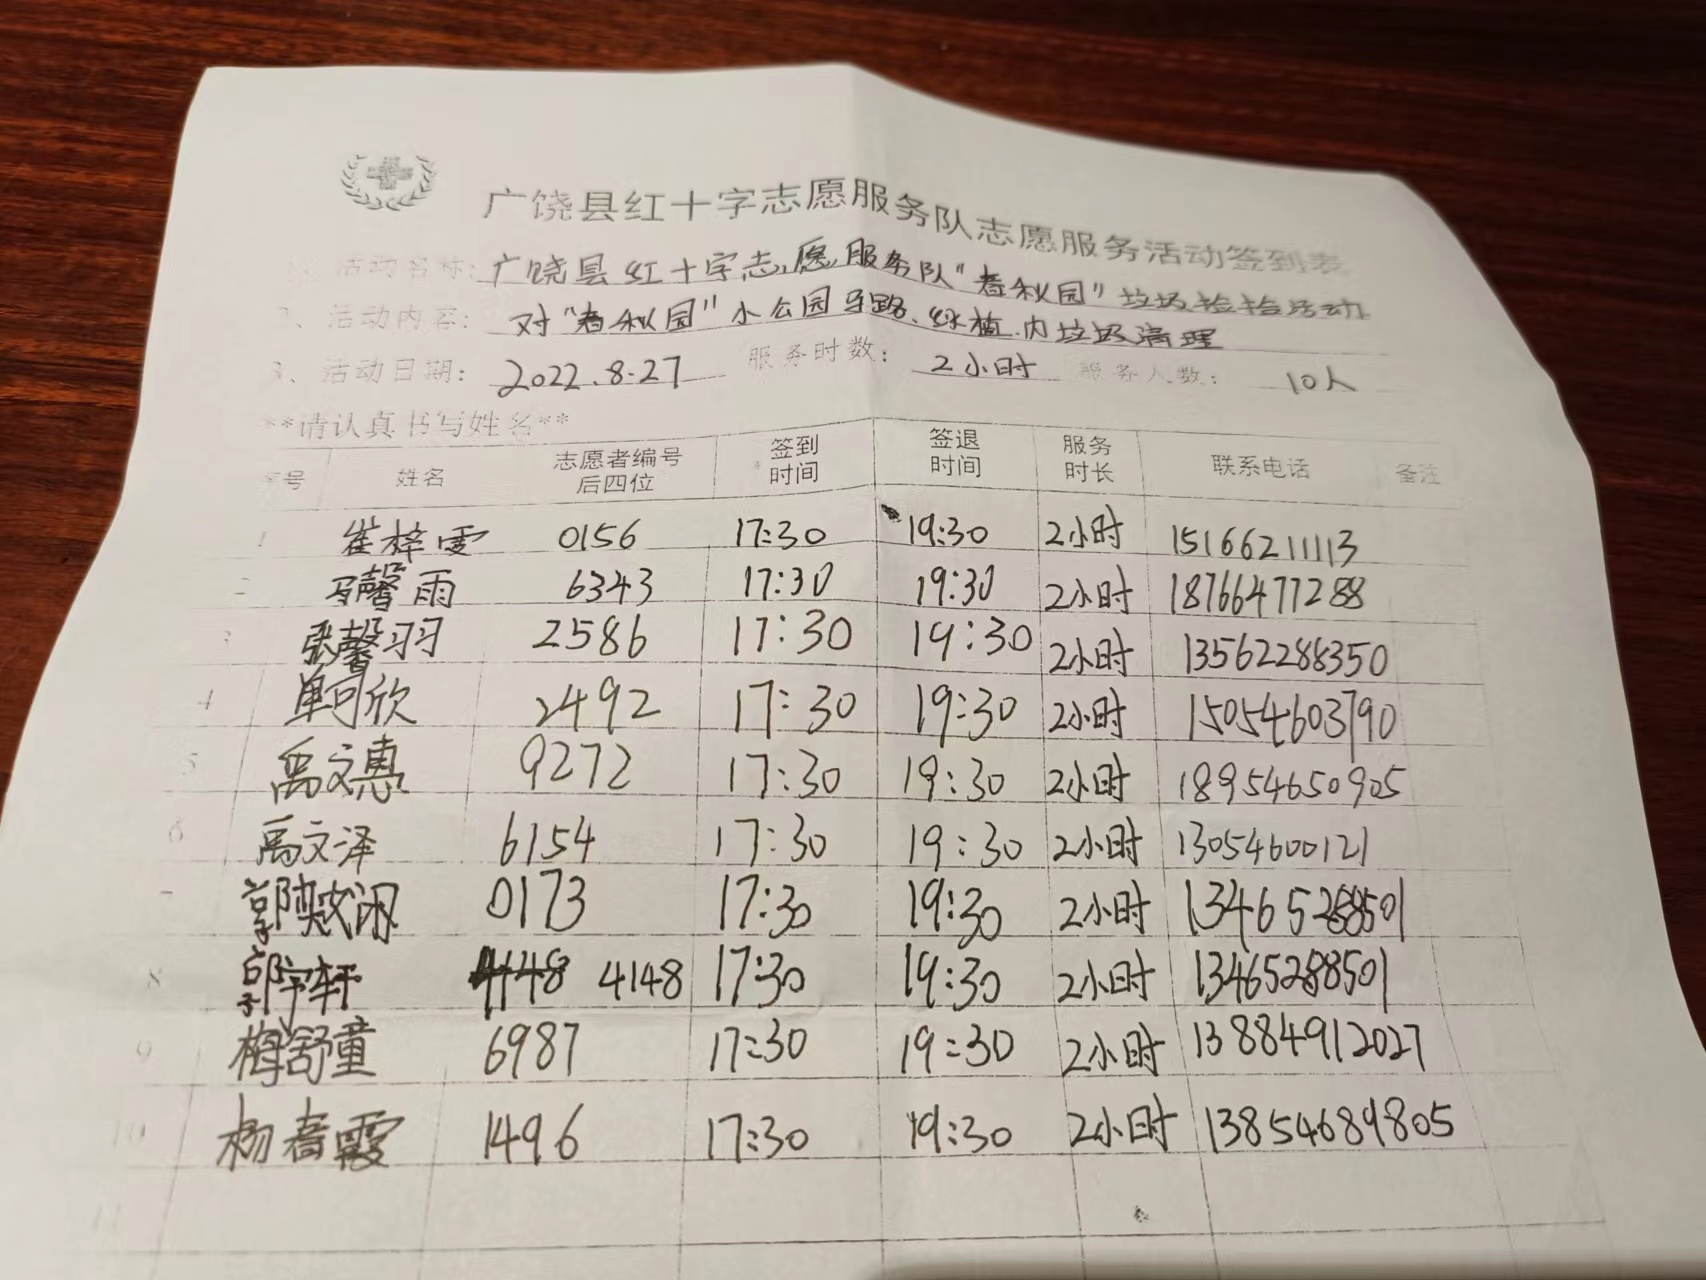 广饶县红十字志愿服务队志愿服务活动签到表
1、活动名称：广饶县红十字志愿服务队“春秋园”垃圾捡拾活动
2、活动内容：对“春秋园”小公园马路、绿植内垃圾清理
3、活动日期：2022.8.27 服务时数：2小时 服务人数：10人
**请认真书写姓名**
序号 姓名 志愿者编号后四位 签到时间 签退时间 服务时长 联系电话 备注
1 崔梓雯 0156 17:30 19:30 2小时 15166211113
2 马馨雨 6343 17:30 19:30 2小时 18766477288
3 张馨羽 2586 17:30 19:30 2小时 13562288350
4 单可欣 2492 17:30 19:30 2小时 15054603790
5 禹文惠 9272 17:30 19:30 2小时 18954650905
6 禹文泽 6154 17:30 19:30 2小时 13054600121
7 0173 17:30 19:30 2小时 13465288501
8 郭宇轩 4148 4148 17:30 19:30 2小时 13465288501
9 梅舒童 6987 17:30 19:30 2小时 13884912027
10 杨春霞 1496 17:30 19:30 2小时 13854689805
11